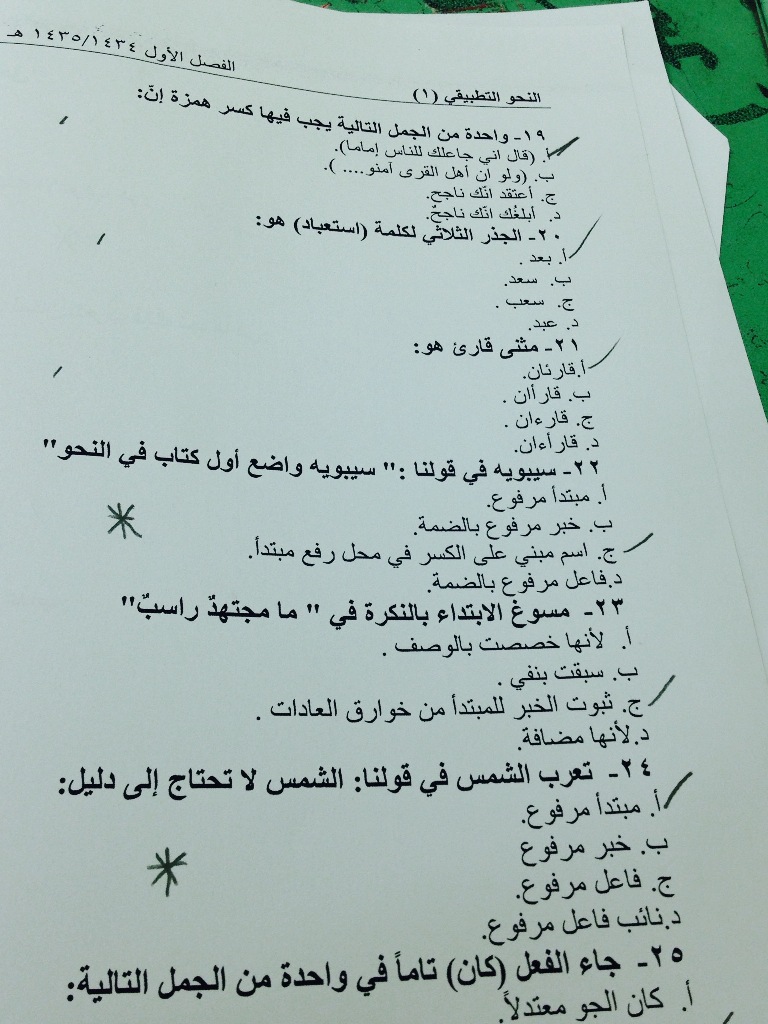 الفصل الأول ١٤٣٥/١٤٣٤ هـ
النحو التطبيقي (١)
١٩- واحدة من الجمل التالية يجب فيها كسر همزة إنّ:
أ. (قال اني جاعلك للناس إماما).
ب. (ولو ان أهل القرى آمنو.... ).
ج. أعتقد انّك ناجح.
د. أبلغُك انّك ناجحٌ.
٢٠- الجذر الثلاثي لكلمة (استعباد) هو:
أ. بعد .
ب. سعد.
ج. سعب .
د. عبد.
٢١- مثنى قارئ هو:
أ.قارئان.
ب. قارأان .
ج. قارءان .
د. قارأءان.
٢٢- سيبويه في قولنا :" سيبويه واضع أول كتاب في النحو"
أ. مبتدأ مرفوع.
ب. خبر مرفوع بالضمة.
ج. اسم مبني على الكسر في محل رفع مبتدأ.
د.فاعل مرفوع بالضمة.
٢٣- مسوغ الابتداء بالنكرة في " ما مجتهدٌ راسبٌ"
أ. لأنها خصصت بالوصف .
ب. سبقت بنفي .
ج. ثبوت الخبر للمبتدأ من خوارق العادات .
د.لأنها مضافة.
٢٤- تعرب الشمس في قولنا: الشمس لا تحتاج إلى دليل:
أ. مبتدأ مرفوع.
ب. خبر مرفوع
ج. فاعل مرفوع.
د.نائب فاعل مرفوع.
٢٥- جاء الفعل (كان) تاماً في واحدة من الجمل التالية:
أ. كان الجو معتدلاً.